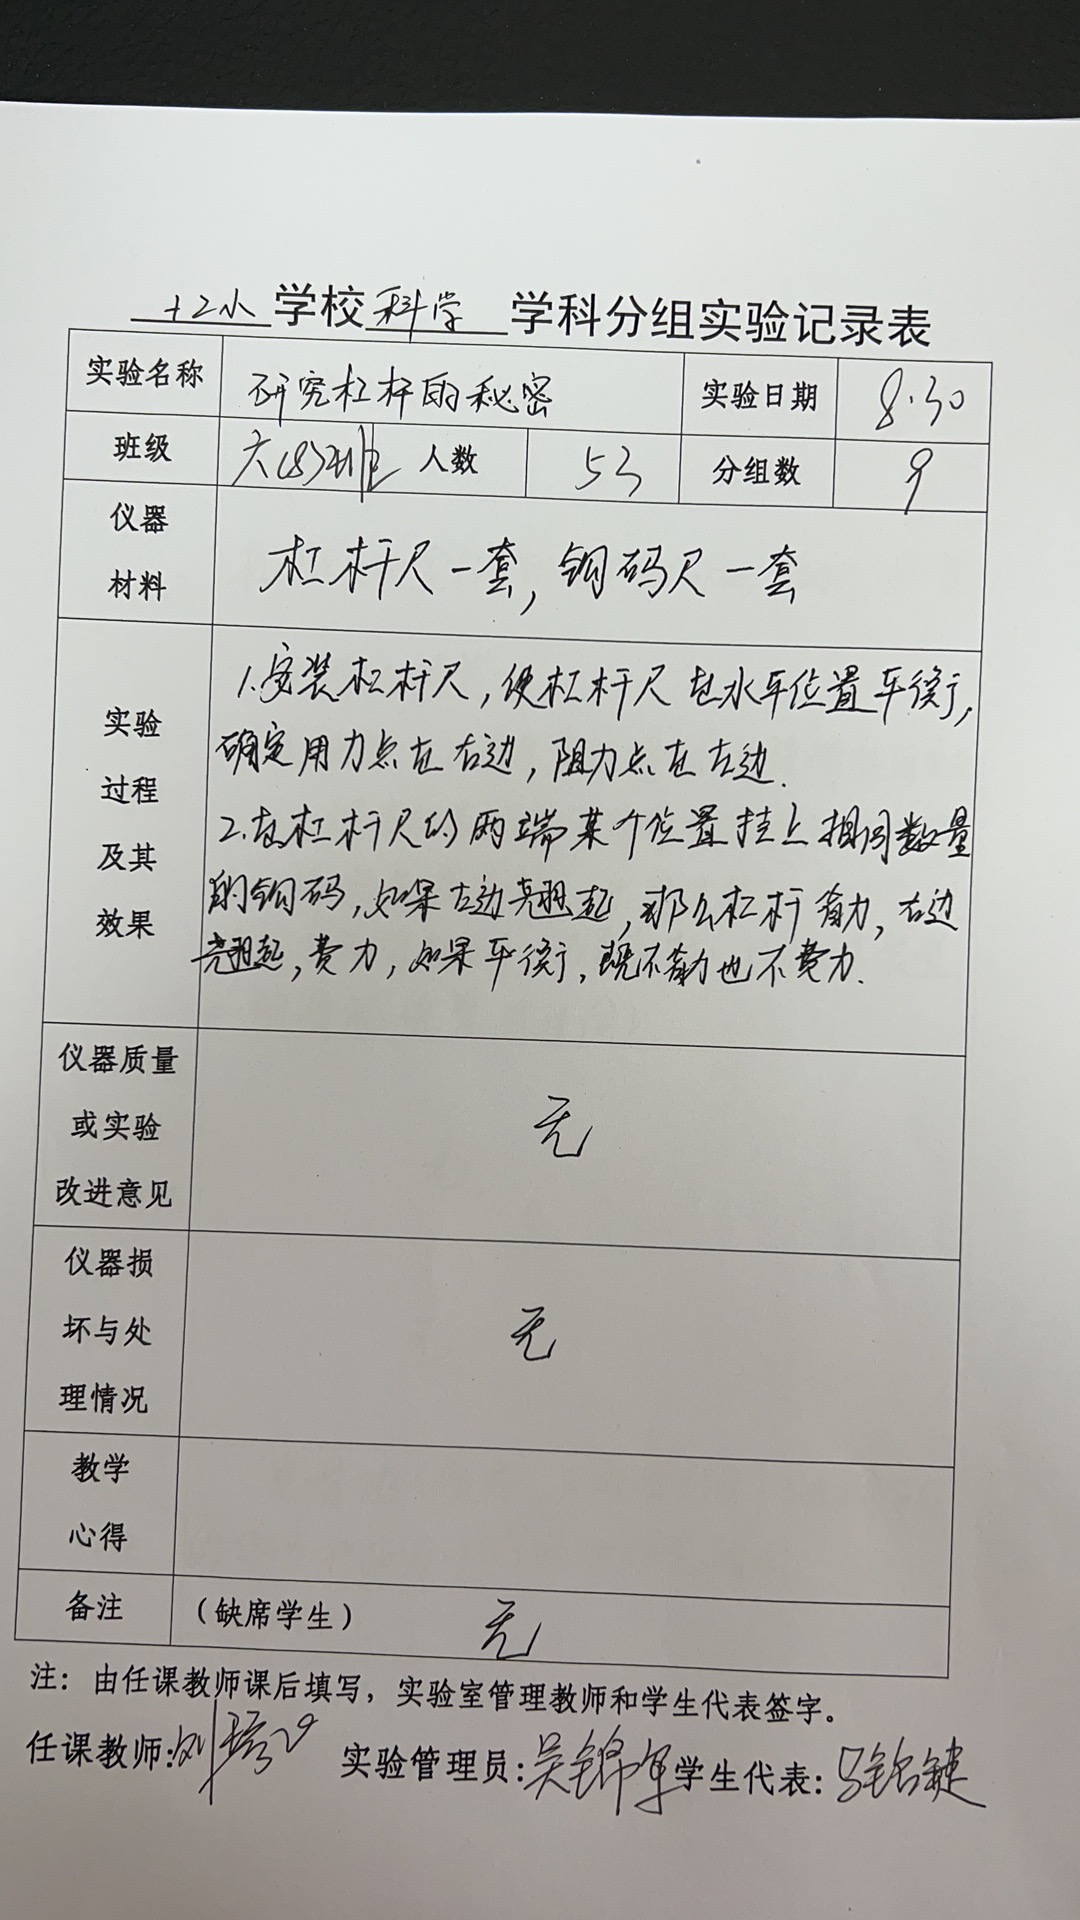 十2小 学校 科学 学科分组实验记录表
实验名称 研究杠杆的秘密 实验日期 8.30
班级 六(8)班 人数 53 分组数 9
仪器
材料
杠杆尺一套,钩码尺一套
实验
过程
及其
效果
1.安装杠杆尺,使杠杆尺在水平位置平衡,
确定用力点在右边,阻力点在左边.
2.在杠杆尺的两端某个位置挂上相同数量
的钩码,如果左边翘起,那么杠杆省力,右边
翘起,费力,如果平衡,既不省力也不费力.
仪器质量
或实验
改进意见
无
仪器损
坏与处
理情况
无
教学
心得
备注 (缺席学生) 无
注:由任课教师课后填写,实验室管理教师和学生代表签字。
任课教师:刘 实验管理员:吴锦军 学生代表:马铭键